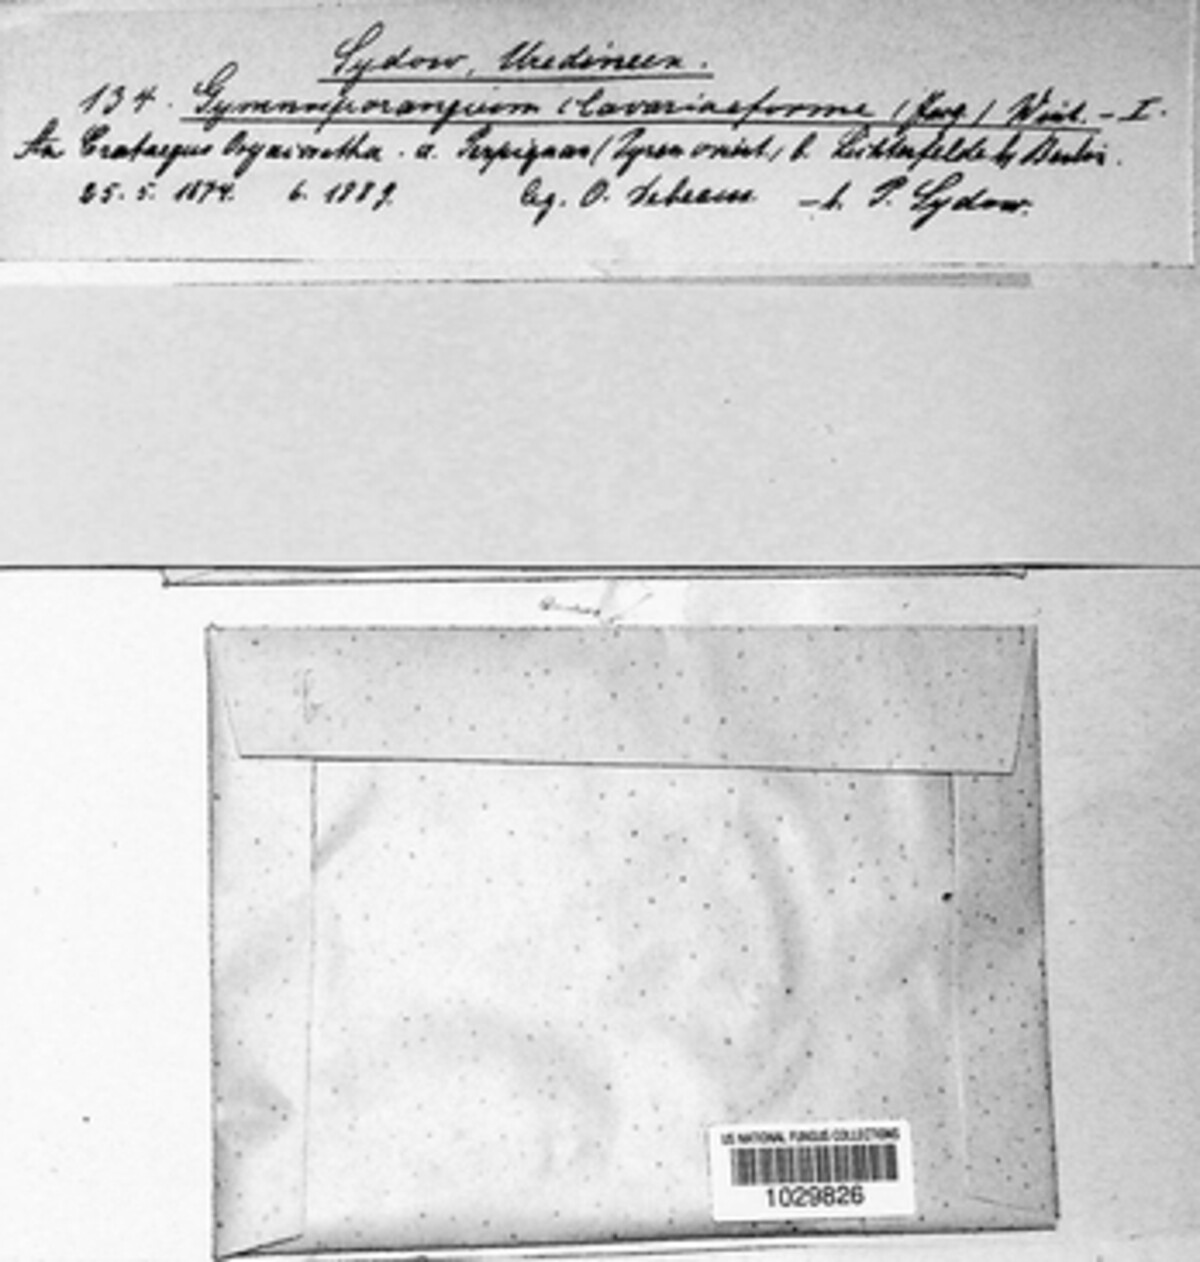 Sydow, Uredineen.
134. Gymnosporangium clavariaeforme (Jacq.) Wint. – I.
An Crataegus Oxyacantha. a. Perpignan (Pyren. orient.) b. Lichterfelde b/ Berlin.
25. 5. 1874. 6. 1889. leg. O. Debeaux – b. P. Sydow.
US NATIONAL FUNGUS COLLECTIONS
1029826